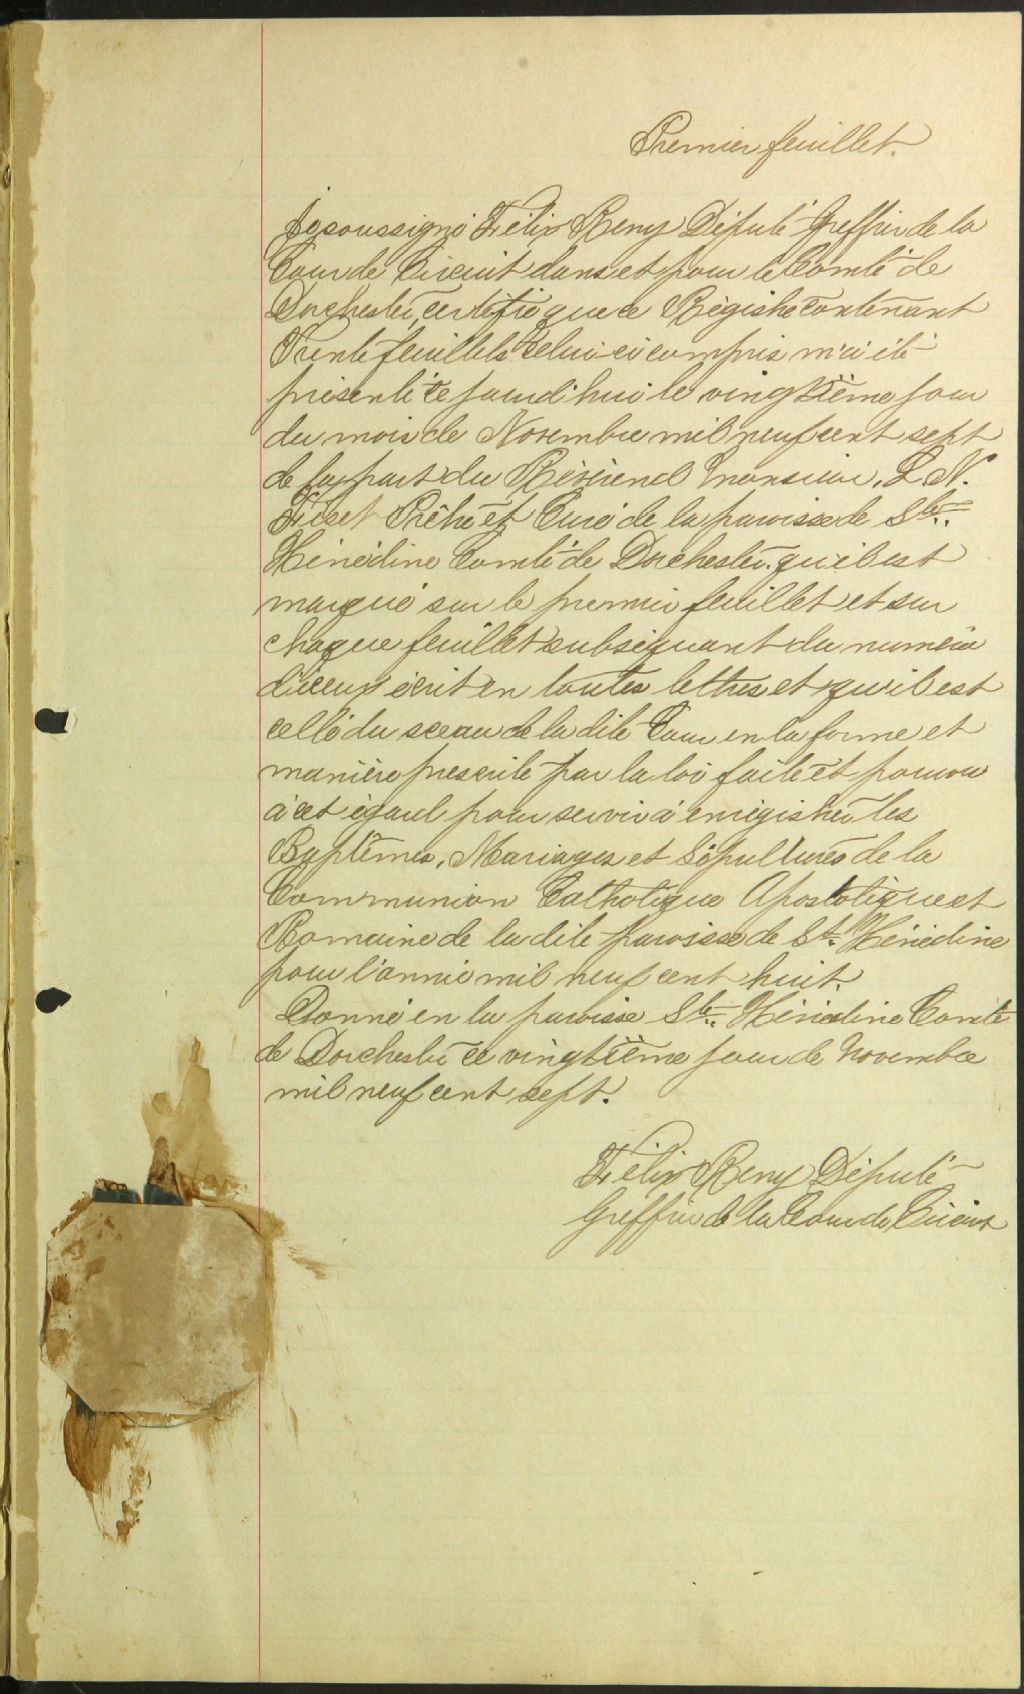 Premier feuillet.
Je soussigné Félix Remy Député Greffier de la
Cour de Circuit dans et pour le Comté de
Dorchester, certifie que ce Régistre contenant
Trente feuillets celui-ci compris m'a été
présenté ce jourd'hui le vingtième jour
du mois de Novembre mil neuf cent sept
de la part du Révérend Monsieur, L. N.
Fiset Prêtre et Curé de la paroisse de Ste.
Hénédine Comté de Dorchester. qu'il est
marqué sur le premier feuillet et sur
chaque feuillet subséquant du numéro
d'iceux écrit en toutes lettres et qu'il est
cellé du sceau de la dite Cour en la forme et
manière prescrite par la loi faite et pourvu
à cet égard pour servir à enrégistrer les
Baptêmes, Mariages et Sépultures de la
Communion Catholique Apostolique et
Romaine de la dite paroisse de Ste. Hénédine
pour l'année mil neuf cent huit.
Donné en la paroisse Ste. Hénédine Comté
de Dorchester ce vingtième jour de Novembre
mil neuf cent sept.
Félix Remy Député
Greffier de la Cour de Circuit